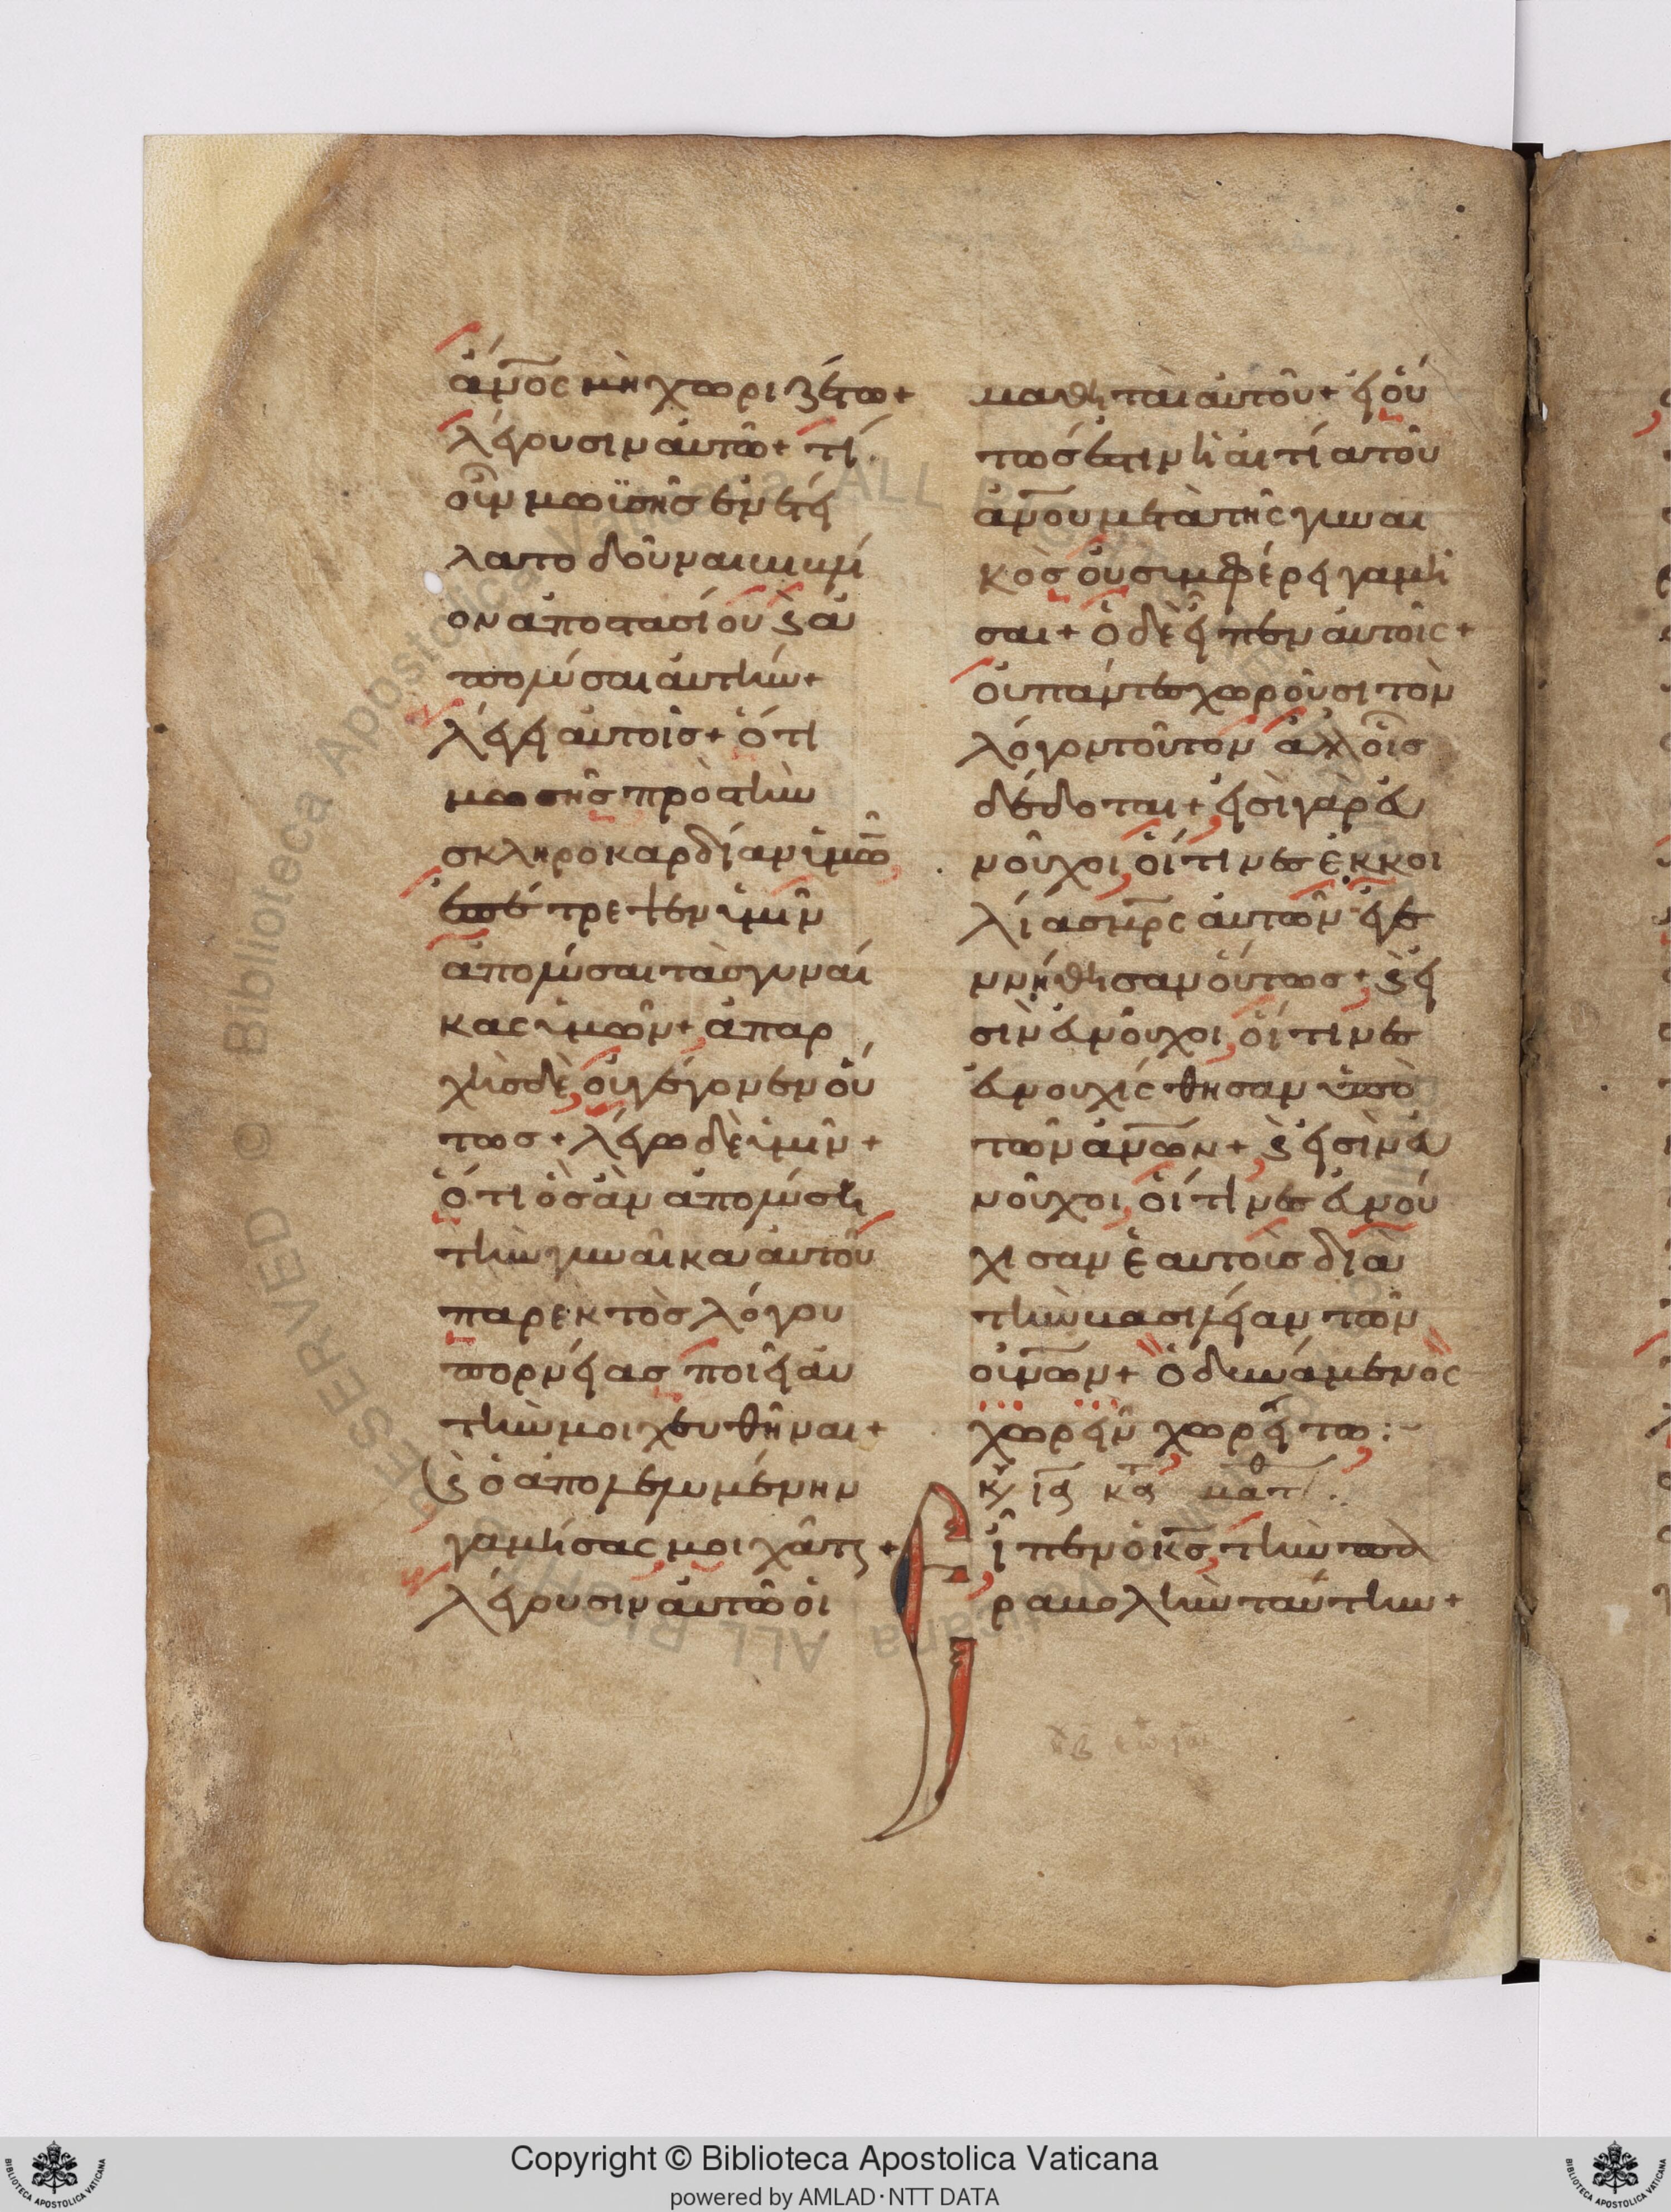 ἀν̅ος μὴ χωριζέτω+
λέγουσιν ἀυτῶ+ τί
οὖν μωϋσῆς ἐνετεί
λατο δοῦναι βιβλί
ον ἀποστασίου ϗ ἀ
πολύσαι ἀυτήν+
λέγει ἀυτοῖς+ ὅτι
μωσῆς πρὸς τὴν
σκληροκαρδίαν ὑμῶν
ἐπέτρεψεν ὑμῖν
ἀπολύσαι τὰς γυναί
κας ὑμῶν+ ἀπαρ
χῆς δὲ οὐ γέγονεν οὕ
τως+ λέγω δὲ ὑμῖν+
ὅτι ὃς ἂν ἀπολύσῃ
τὴν γυναῖκα ἀυτοῦ
παρεκτὸς λόγου
πορνείας ποιεῖ ἀυ
τὴν μοιχευθῆναι+
ϗ ὁ ἀπολελυμένην
γαμήσας μοιχᾶται+
λέγουσιν ἀυτῶ οἱ
μαθηταὶ ἀυτοῦ+ εἰ οὕ
τως ἐστιν ἡ ἀιτία τοῦ
ἀν̅ου μετὰ τῆς γυναι
κὸς οὐ συμφέρει γαμῆ
σαι+ ὁ δὲ εἶπεν ἀυτοῖς+
οὐ πάντες χωροῦσι τὸν
λόγον τοῦτον ἀλλ οἷς
δέδοται+ εἰσὶ γὰρ ἐυ
νοῦχοι οἵτινες ἐκ κοι
λίας μρ̅ς ἀυτῶν ἐγε
ννήθησαν οὕτως+ ϗ εἰ
σὶν ἐυνοῦχοι οἵτινες
ἐυνουχίσθησαν ὑπὸ
τῶν ἀν̅ων+ ϗ εἰσὶν ἐυ
νοῦχοι οἵτινες ἐυνού
χισαν ἑαυτοῖς διὰ
τὴν βασιλείαν τῶν
οὐν̅ων+ ὁ δυνάμενος
χωρεῖν χωρείτω:~
κυ ιϛ κϛ ματθ
εἶπεν ὁ κ̅ς τὴν πα
ραβολὴν ταύτην+
Copyright © Biblioteca Apostolica Vaticana
powered by AMLAD·NTT DATA